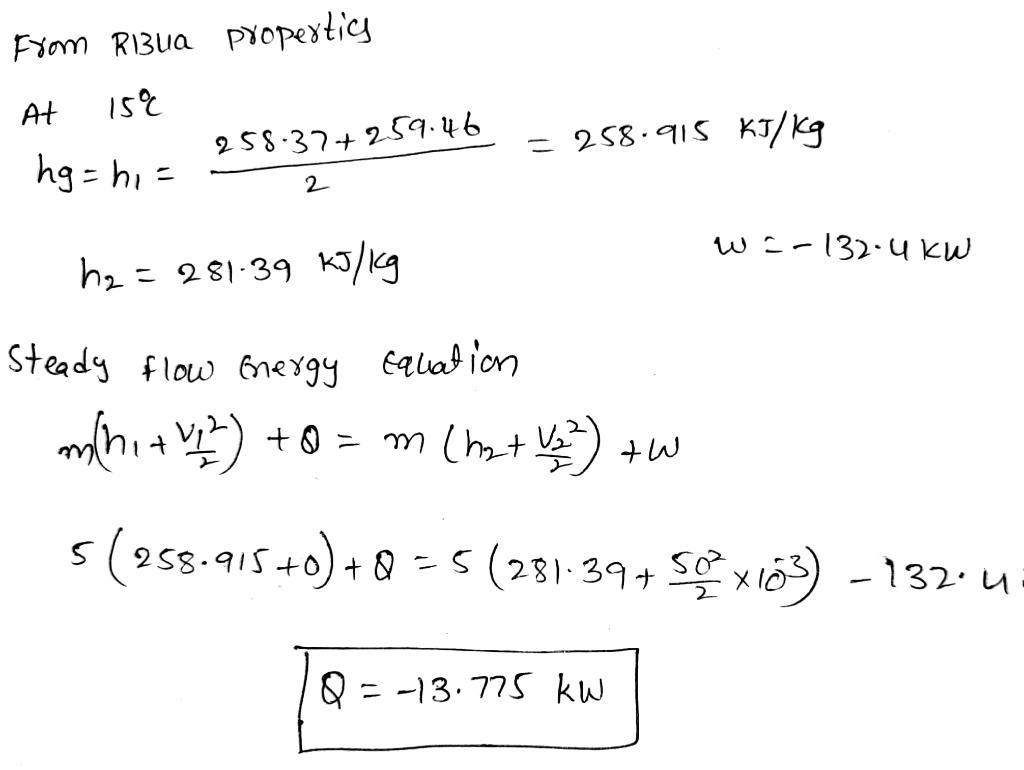 From R134a properties
At 15℃
hg = h₁ = (258.37 + 259.46)/2 = 258.915 KJ/Kg
h₂ = 281.39 KJ/Kg    W = -132.4 KW
Steady flow Energy Equation
m(h₁ + V₁²/2) + Q = m (h₂ + V₂²/2) + W
5 (258.915 + 0) + Q = 5 (281.39 + 50²/2 × 10⁻³) - 132.4
Q = -13.775 KW